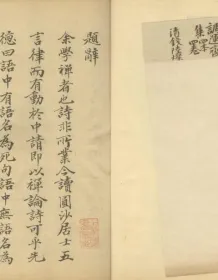 調運齋
清錢陸燦
題辭
余學禪者也詩非所業今讀圓沙居士五
言律而有動於中請即以禪論詩可乎先
德曰語中有語名為死句語中無語名為